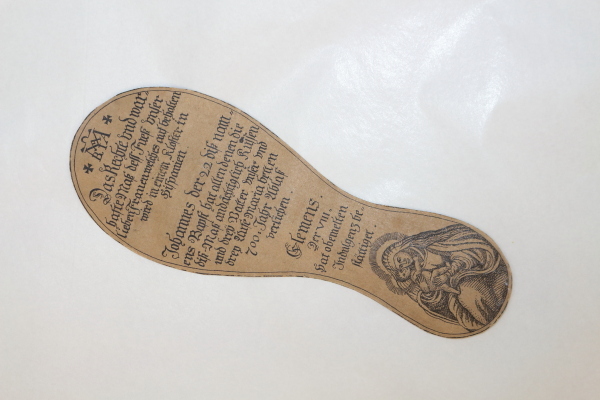 Das Rechte vnd war
haffte Maß deß Fueß vnser
lieben frauen welches auf behalten
wird in einem Kloster in
Hispanien
Johannes der 22 diß nam
ens Papst hat allen denen die
diß Maß andächtiglich Küssen
und drey Vatter vnser vnd
drey Aue Maria betten
700 Jahr Ablaß
verlichen
Clemens.
Der VIII.
hat obemelten
Indulgentz be
stättiget